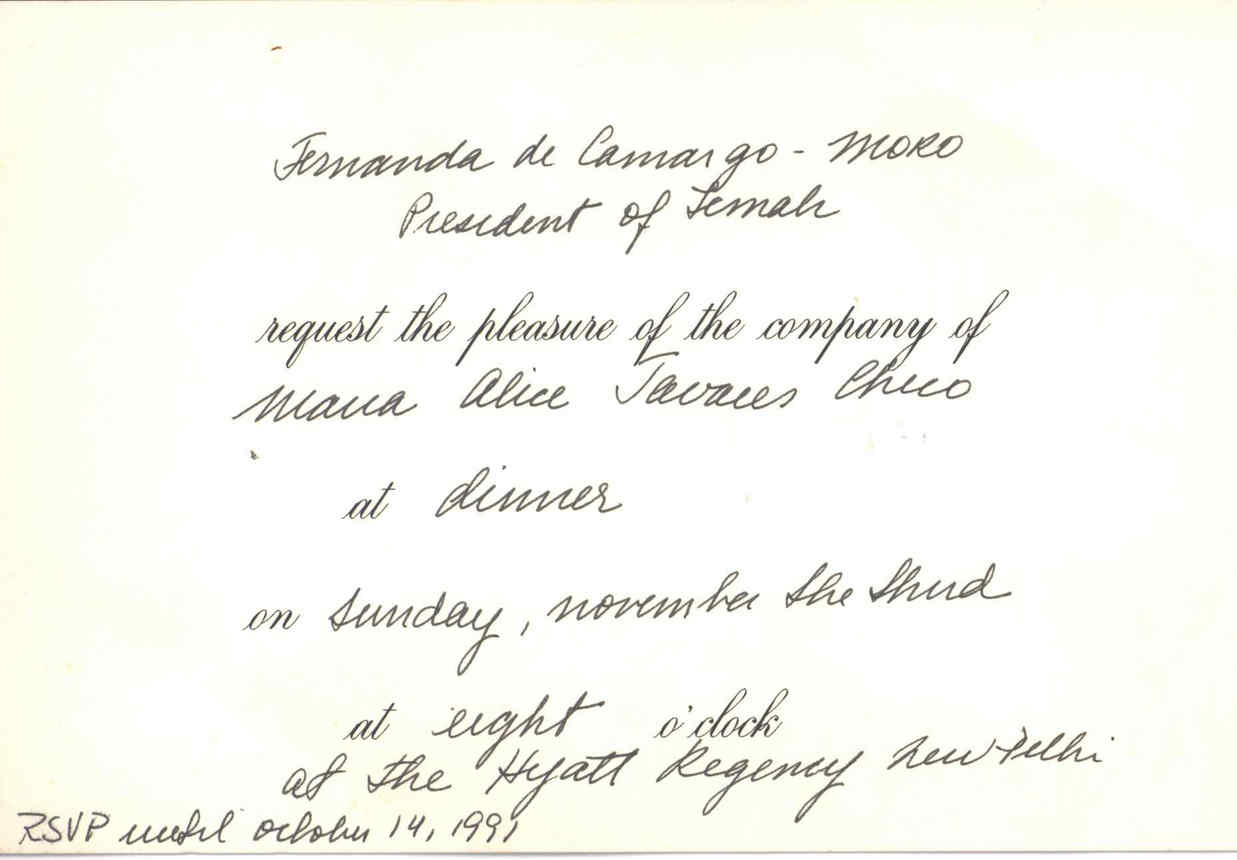 Fernanda de Camargo - Moro
President of Femah
request the pleasure of the company of
Maria Alice Tavares Chico
at dinner
on Sunday, november the third
at eight o'clock
at the Hyatt Regency New Delhi
RSVP until october 14, 1991